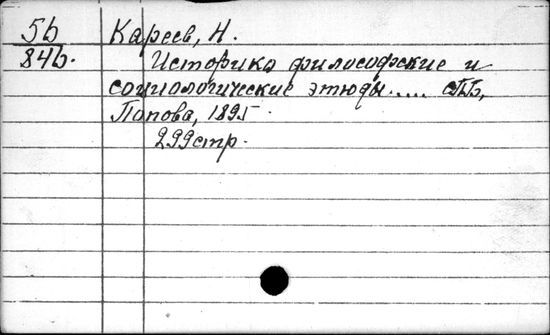 5b Кареев, Н.
84b. Историко философские и
социологические этюды..... СПБ,
Попова, 1895.
299 стр.